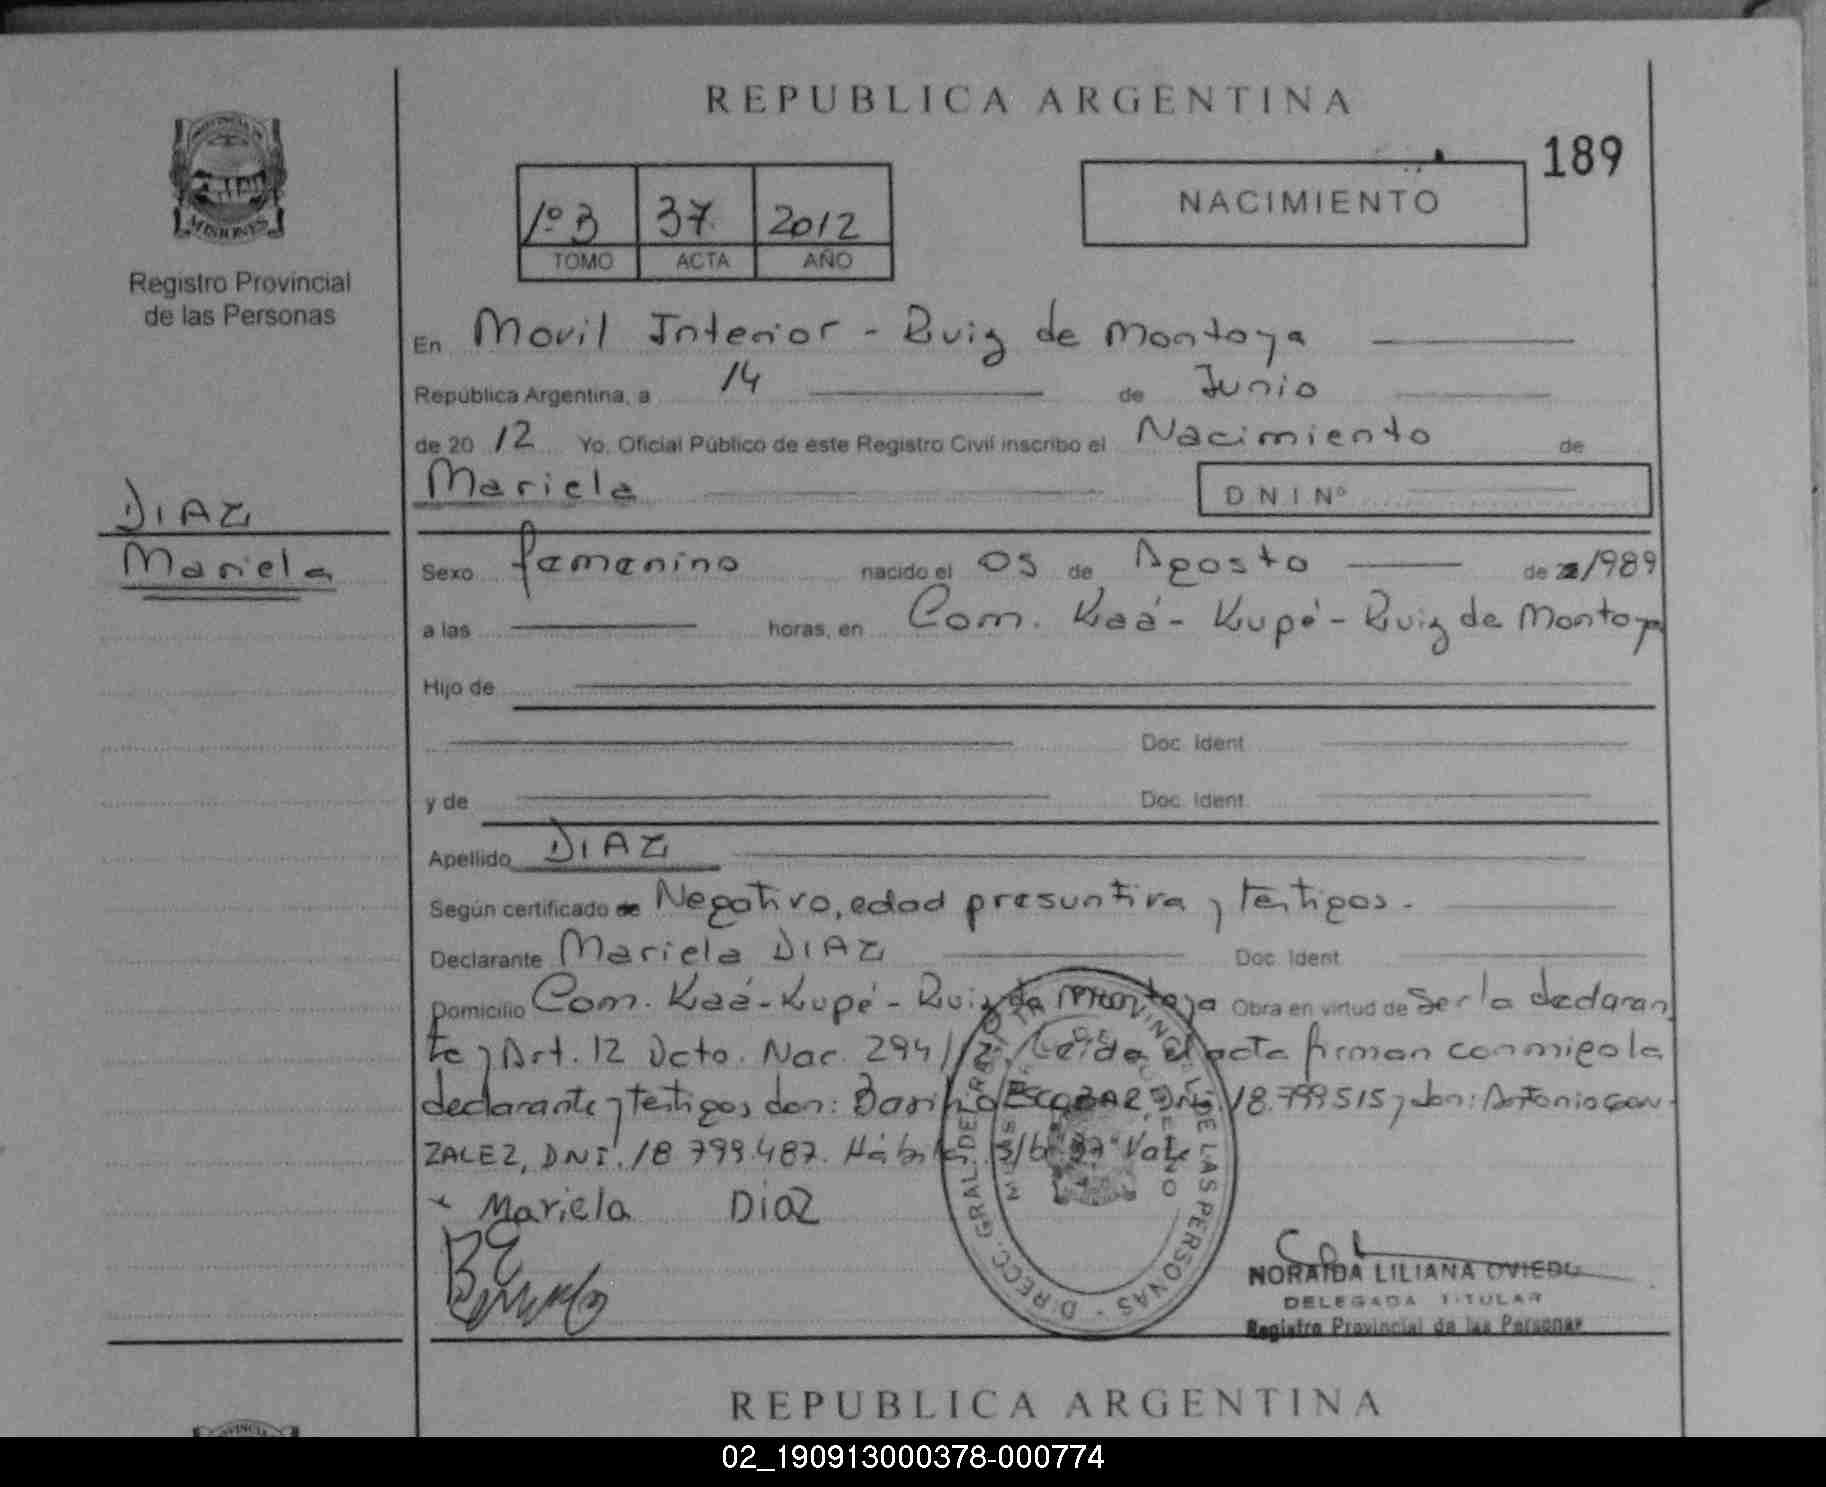 REPUBLICA ARGENTINA
189
NACIMIENTO
1º 3 37 2012
TOMO ACTA AÑO
MISIONES
Registro Provincial
de las Personas
En Movil Interior - Ruiz de Montoya
República Argentina, a 14 de Junio
de 2012 Yo, Oficial Público de este Registro Civil inscribo el Nacimiento de
Mariela DNI Nº
DIAZ
Mariela
Sexo femenino nacido el 05 de Agosto de 1989
a las horas, en Com. Kaá-Kupé-Ruiz de Montoya
Hijo de
Doc. Ident.
y de Doc. Ident.
Apellido DIAZ
Según certificado de Negativo, edad presuntiva y testigos.
Declarante Mariela DIAZ Doc. Ident.
Domicilio Com. Kaá-Kupé-Ruiz de Montoya Obra en virtud de Ser la declaran
te y Art. 12 Dcto. Nac. 294/12. Leída el acta firman conmigo la
declarante y testigos don: ESCOBAR, DNI. 18.799515 y don: Antonio GON-
ZALEZ, DNI. 18 799.487.
Mariela Diaz
NORAIDA LILIANA OVIEDO
DELEGADA TITULAR
Registro Provincial de las Personas
DIRECC. GRAL. DE REG. PROVINCIAL DE LAS PERSONAS
REPUBLICA ARGENTINA
02_190913000378-000774